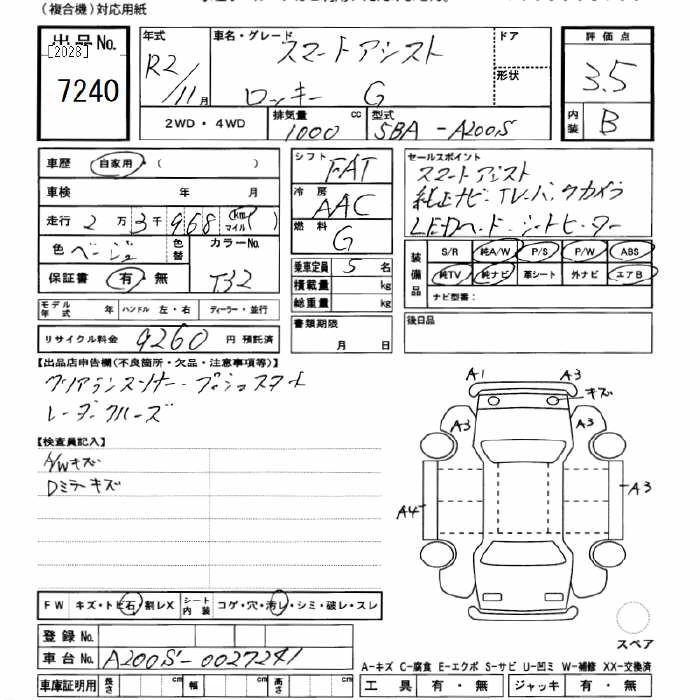 (複合機)対応用紙
出品No. 年式 車名・グレード スマートアシスト ドア 評価点
[2028] R2/11月 ロッキー G 形状 3.5
7240 2WD・4WD 排気量 cc 1000 型式 5BA-A200S 内装 B
車歴 自家用・( ) シフト FAT セールスポイント
スマートアシスト
車検 年 月 冷房 AAC 純正ナビ・TV・バックカメラ
走行 2万3千968 km マイル ( ) 燃料 G LEDヘッド・シートヒーター
色 ベージュ 色替 カラーNo. T32 乗車定員 5名 装備品 S/R 純A/W P/S P/W ABS
保証書 有・無 積載量 kg 純TV 純ナビ 革シート 外ナビ エアB
総重量 kg ナビ型番:
モデル年式 年 ハンドル 左・右 ディーラー・並行 書類期限 月 日 後日品
リサイクル料金 9260 円 預託済
【出品店申告欄(不良箇所・欠品・注意事項等)】
クリアランスソナー・プッシュスタート
レーダークルーズ
A1 A3
キズ
A3 A3
【検査員記入】
A/Wキズ
Dミラーキズ
A4 A3
FW キズ・トビ石・割レX シート内装 コゲ・穴・汚レ・シミ・破レ・スレ
スペア
登録No.
車台No. A200S-0027241
A-キズ C-腐食 E-エクボ S-サビ U-凹ミ W-補修 XX-交換済
車庫証明用 長さ cm 幅 cm 高さ cm 工具 有・無 ジャッキ 有・無